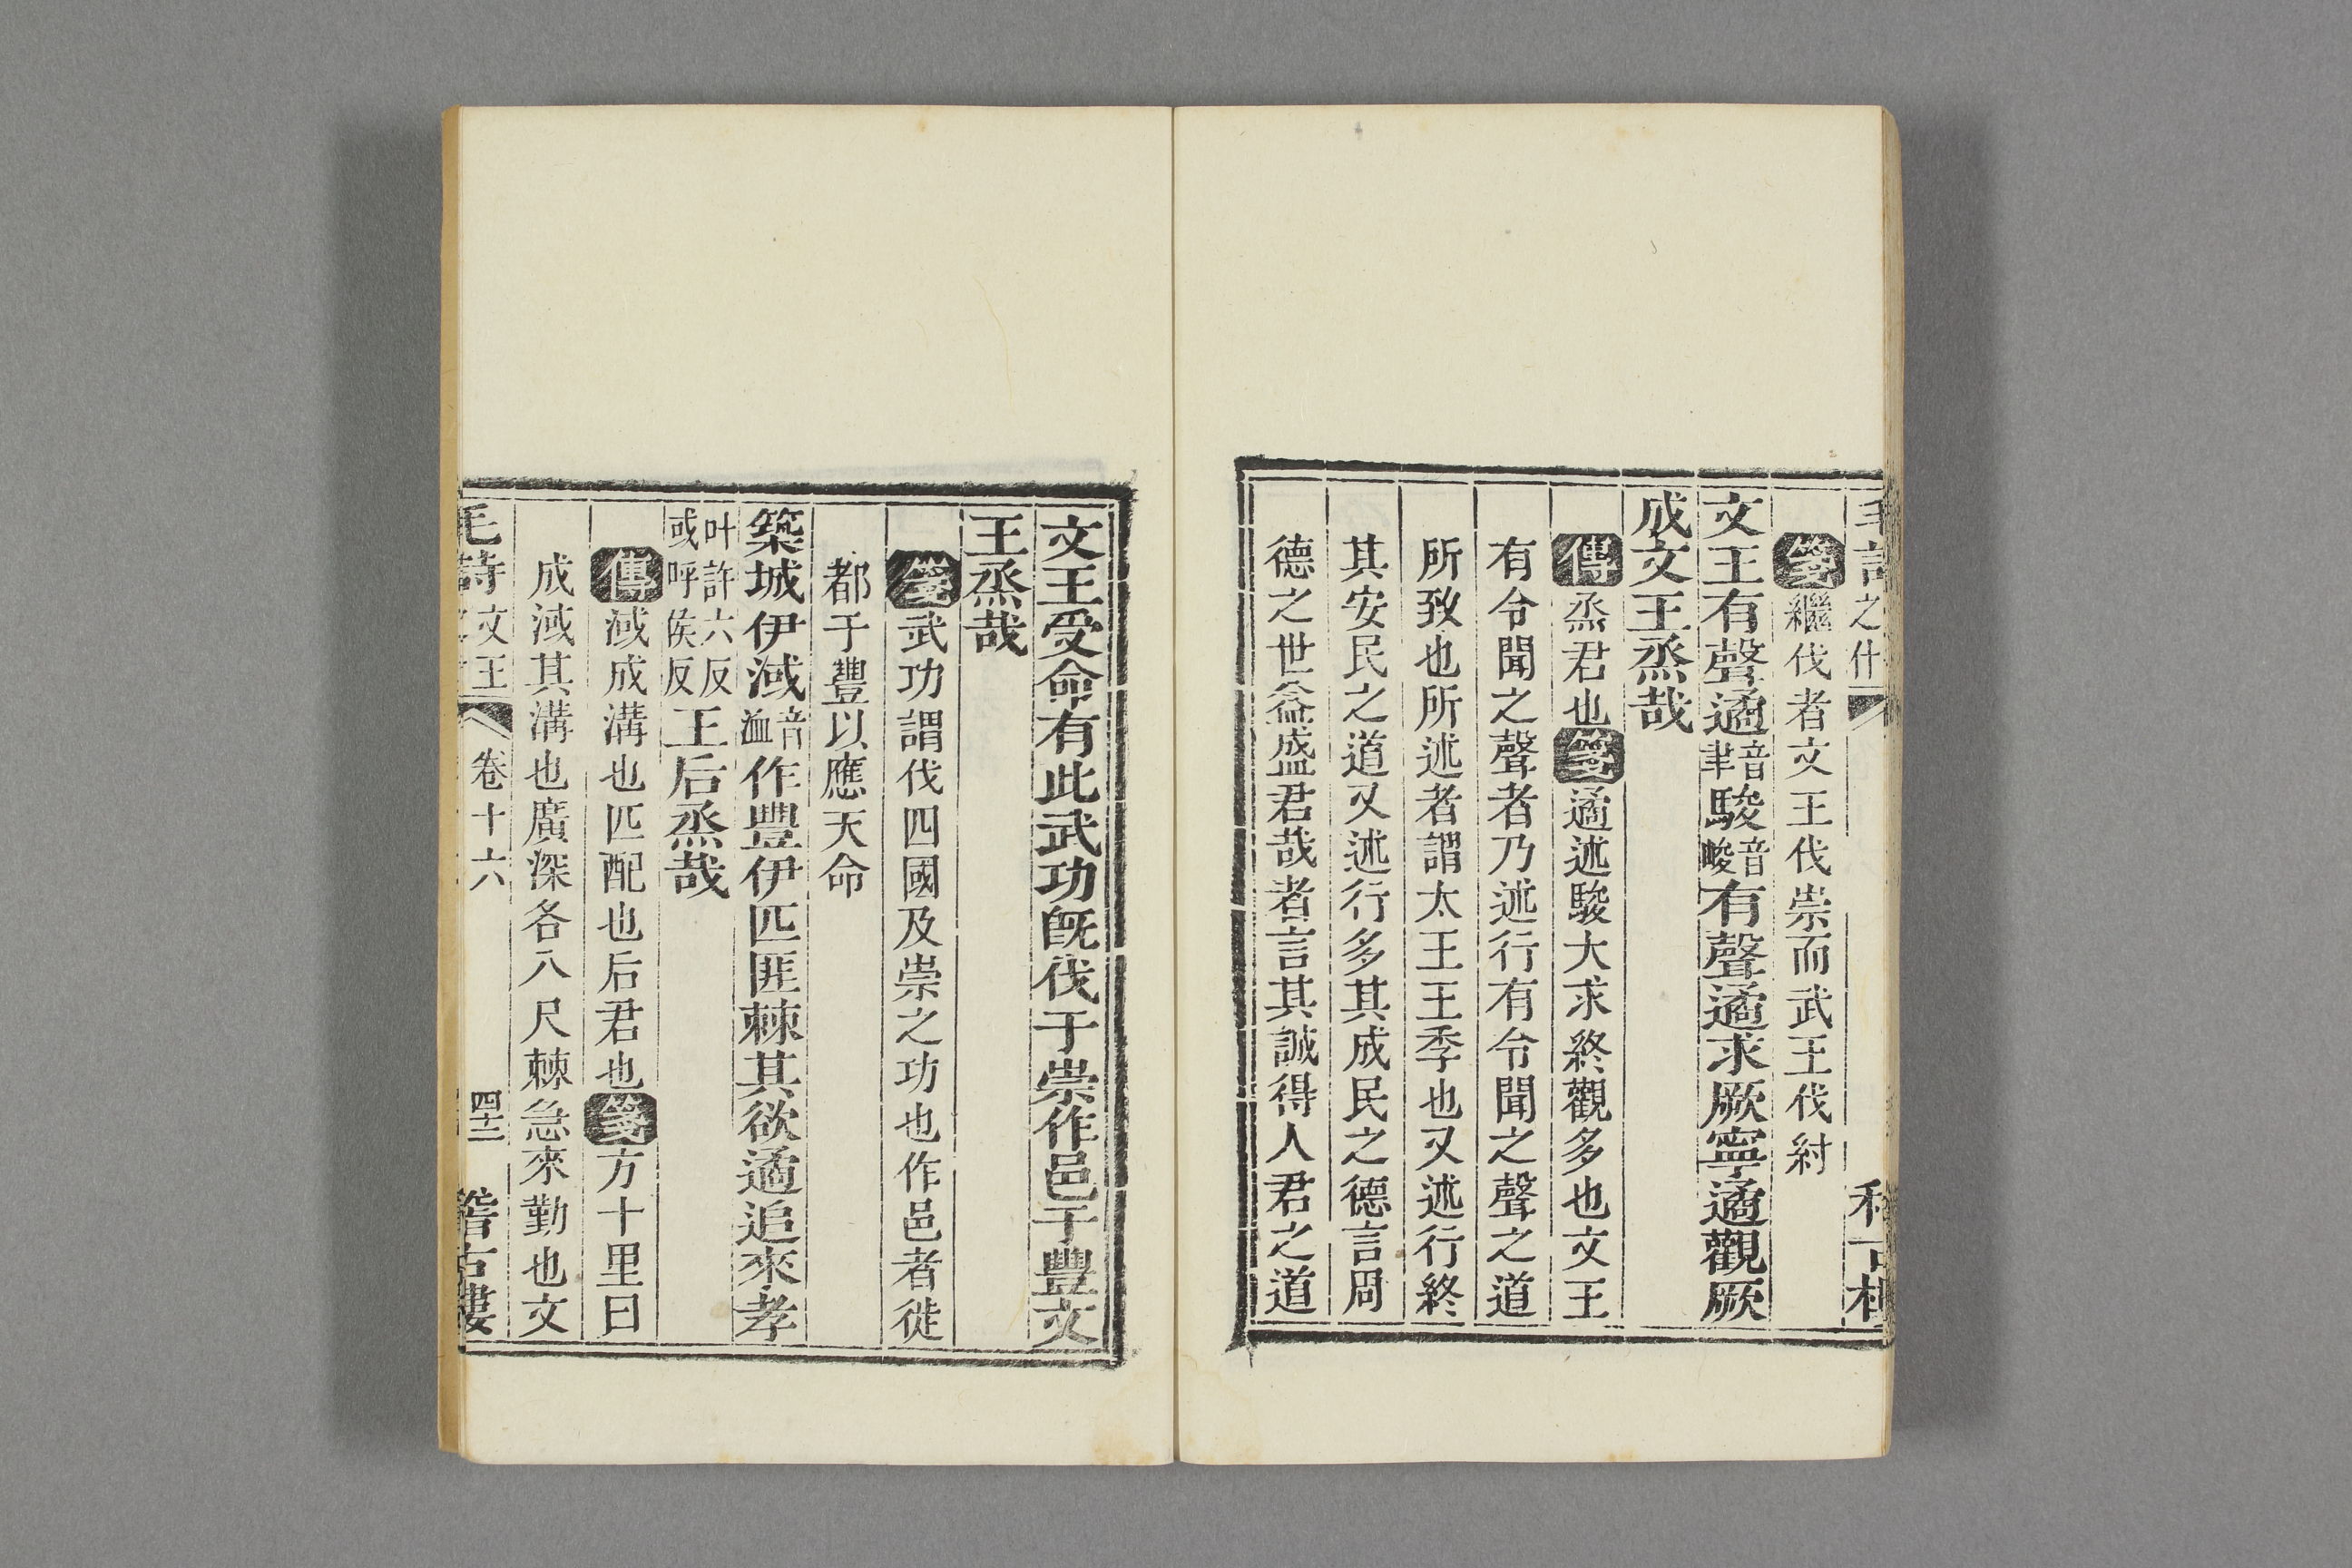 之什
箋繼伐者文王伐崇而武王伐紂
文王有聲遹音聿駿音峻有聲遹求厥寧遹觀厥
成文王烝哉
傳烝君也箋遹述駿大求終觀多也文王
有令聞之聲者乃述行有令聞之聲之道
所致也所述者謂太王王季也又述行終
其安民之道又述行多其成民之德言周
德之世益盛君哉者言其誠得人君之道
文王受命有此武功旣伐于崇作邑于豐文
王烝哉
箋武功謂伐四國及崇之功也作邑者徙
都于豐以應天命
築城伊淢音洫作豐伊匹匪棘其欲遹追來孝
叶許六反或呼侯反王后烝哉
傳淢成溝也匹配也后君也箋方十里曰
成淢其溝也廣深各八尺棘急來勤也文
毛詩 文王 卷十六 四十二 稽古樓